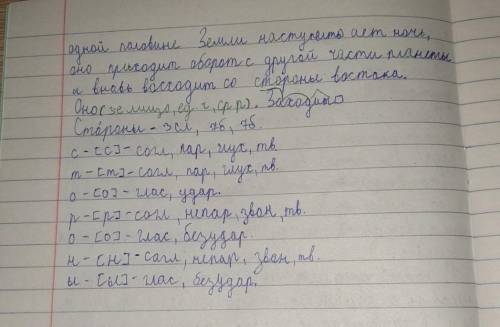 одной половине Земли наступает ает ночь,
оно приходит оборот с другой части планеты
и вновь восходит со стороны востока.
Оно(3е лицо, ед. ч, ср.р). Заходит
Стороны - 3сл, 7б, 7б.
с - [с] - согл, пар, глух, тв.
т - [т] - согл, пар, глух, тв.
о - [о] - глас, удар.
р - [р] - согл, непар, звон, тв.
о - [о] - глас, безудар.
н - [н] - согл, непар, звон, тв.
ы - [ы] - глас, безудар.